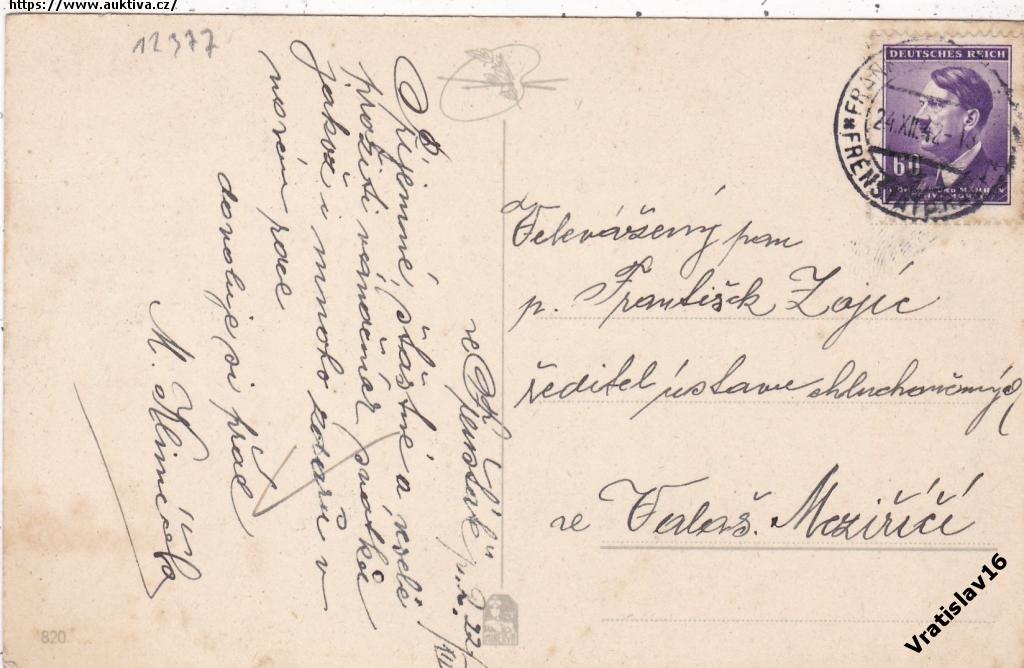 https://www.auktiva.cz/
12377
Příjemné, šťastné a veselé
prožití vánočních svátků
jakož i mnoho zdaru v
novém roce
dovoluje si přát
M. Klimešová
ve Frenštátě p. R. 22/XII
DEUTSCHES REICH
60
BÖHMEN UND MÄHREN
24.XII.42
FRENŠTÁT P. R.
Velevážený pan
p. František Zajíc
ředitel ústavu hluchoněmých
ve Valaš. Meziříčí
820
Vratislav16